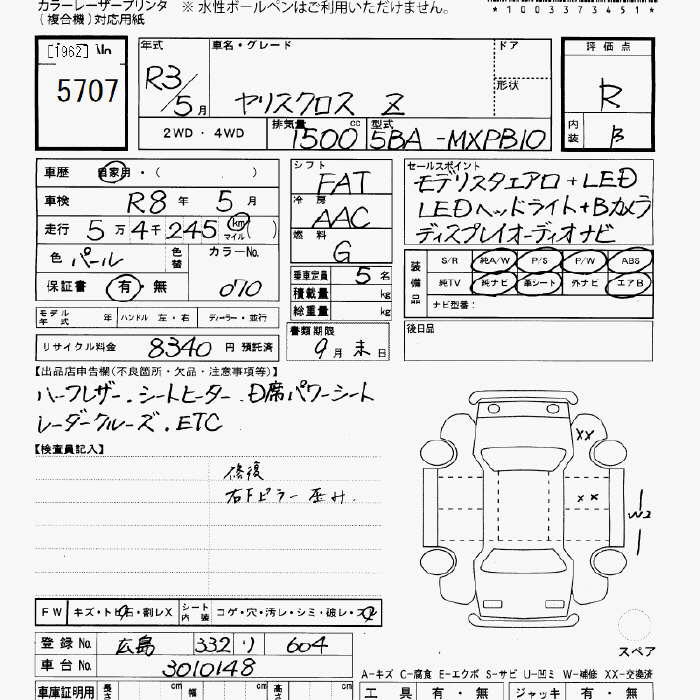 カラーレーザープリンタ ※ 水性ボールペンはご利用いただけません。
(複合機)対応用紙 *1003373451*
[1962]
5707
年式 車名・グレード ドア 評価点
R3/5月 ヤリスクロス Z 形状 R
2WD・4WD 排気量 1500 cc 型式 5BA-MXPB10 内装 B
車歴 自家用・( )
車検 R8年 5月
走行 5万4千245 km マイル ( )
色 パール 色替 カラーNo.
保証書 有・無 070
シフト FAT
冷房 AAC
燃料 G
セールスポイント
モデリスタエアロ+LED
LEDヘッドライト+Bカメラ
ディスプレイオーディオナビ
乗車定員 5名
積載量 kg
総重量 kg
装備品 S/R 純A/W P/S P/W ABS
純TV 純ナビ 革シート 外ナビ エアB
ナビ型番:
モデル年式 年 ハンドル 左・右 ディーラー・並行
書類期限 9月末日
後日品
リサイクル料金 8340 円 預託済
【出品店申告欄(不良箇所・欠品・注意事項等)】
ハーフレザー.シートヒーター.D席パワーシート
レーダークルーズ.ETC
【検査員記入】
修復
右Fピラー歪み.
XX
XX
W2
FW キズ・トビ石・割レX シート内装 コゲ・穴・汚レ・シミ・破レ・スレ
登録No. 広島 332 り 604
車台No. 3010148
スペア
A-キズ C-腐食 E-エクボ S-サビ U-凹ミ W-補修 XX-交換済
車庫証明用 長さ cm 幅 cm 高さ cm 工具 有・無 ジャッキ 有・無